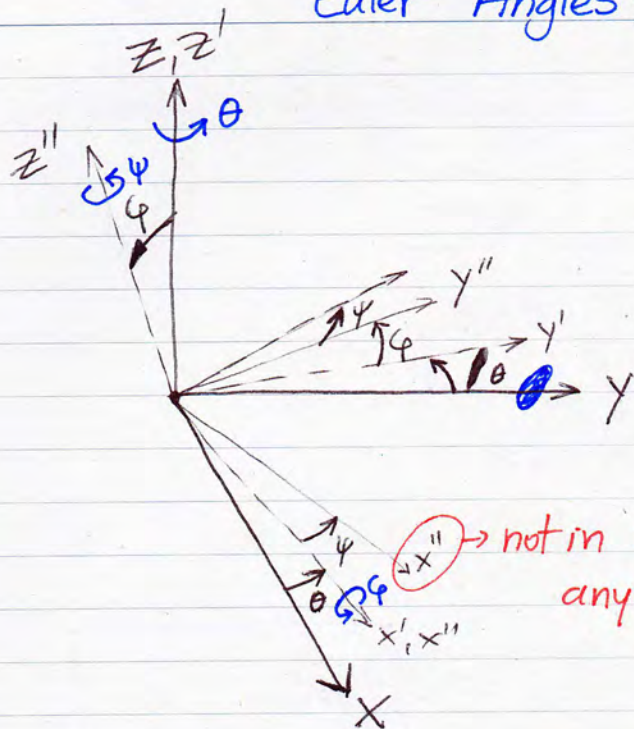 Euler Angles
Z, Z'
θ
Z"
ψ
φ
y"
ψ
φ
y'
θ
y
ψ
x"
→ not in
any
θ
φ
x', x"
X